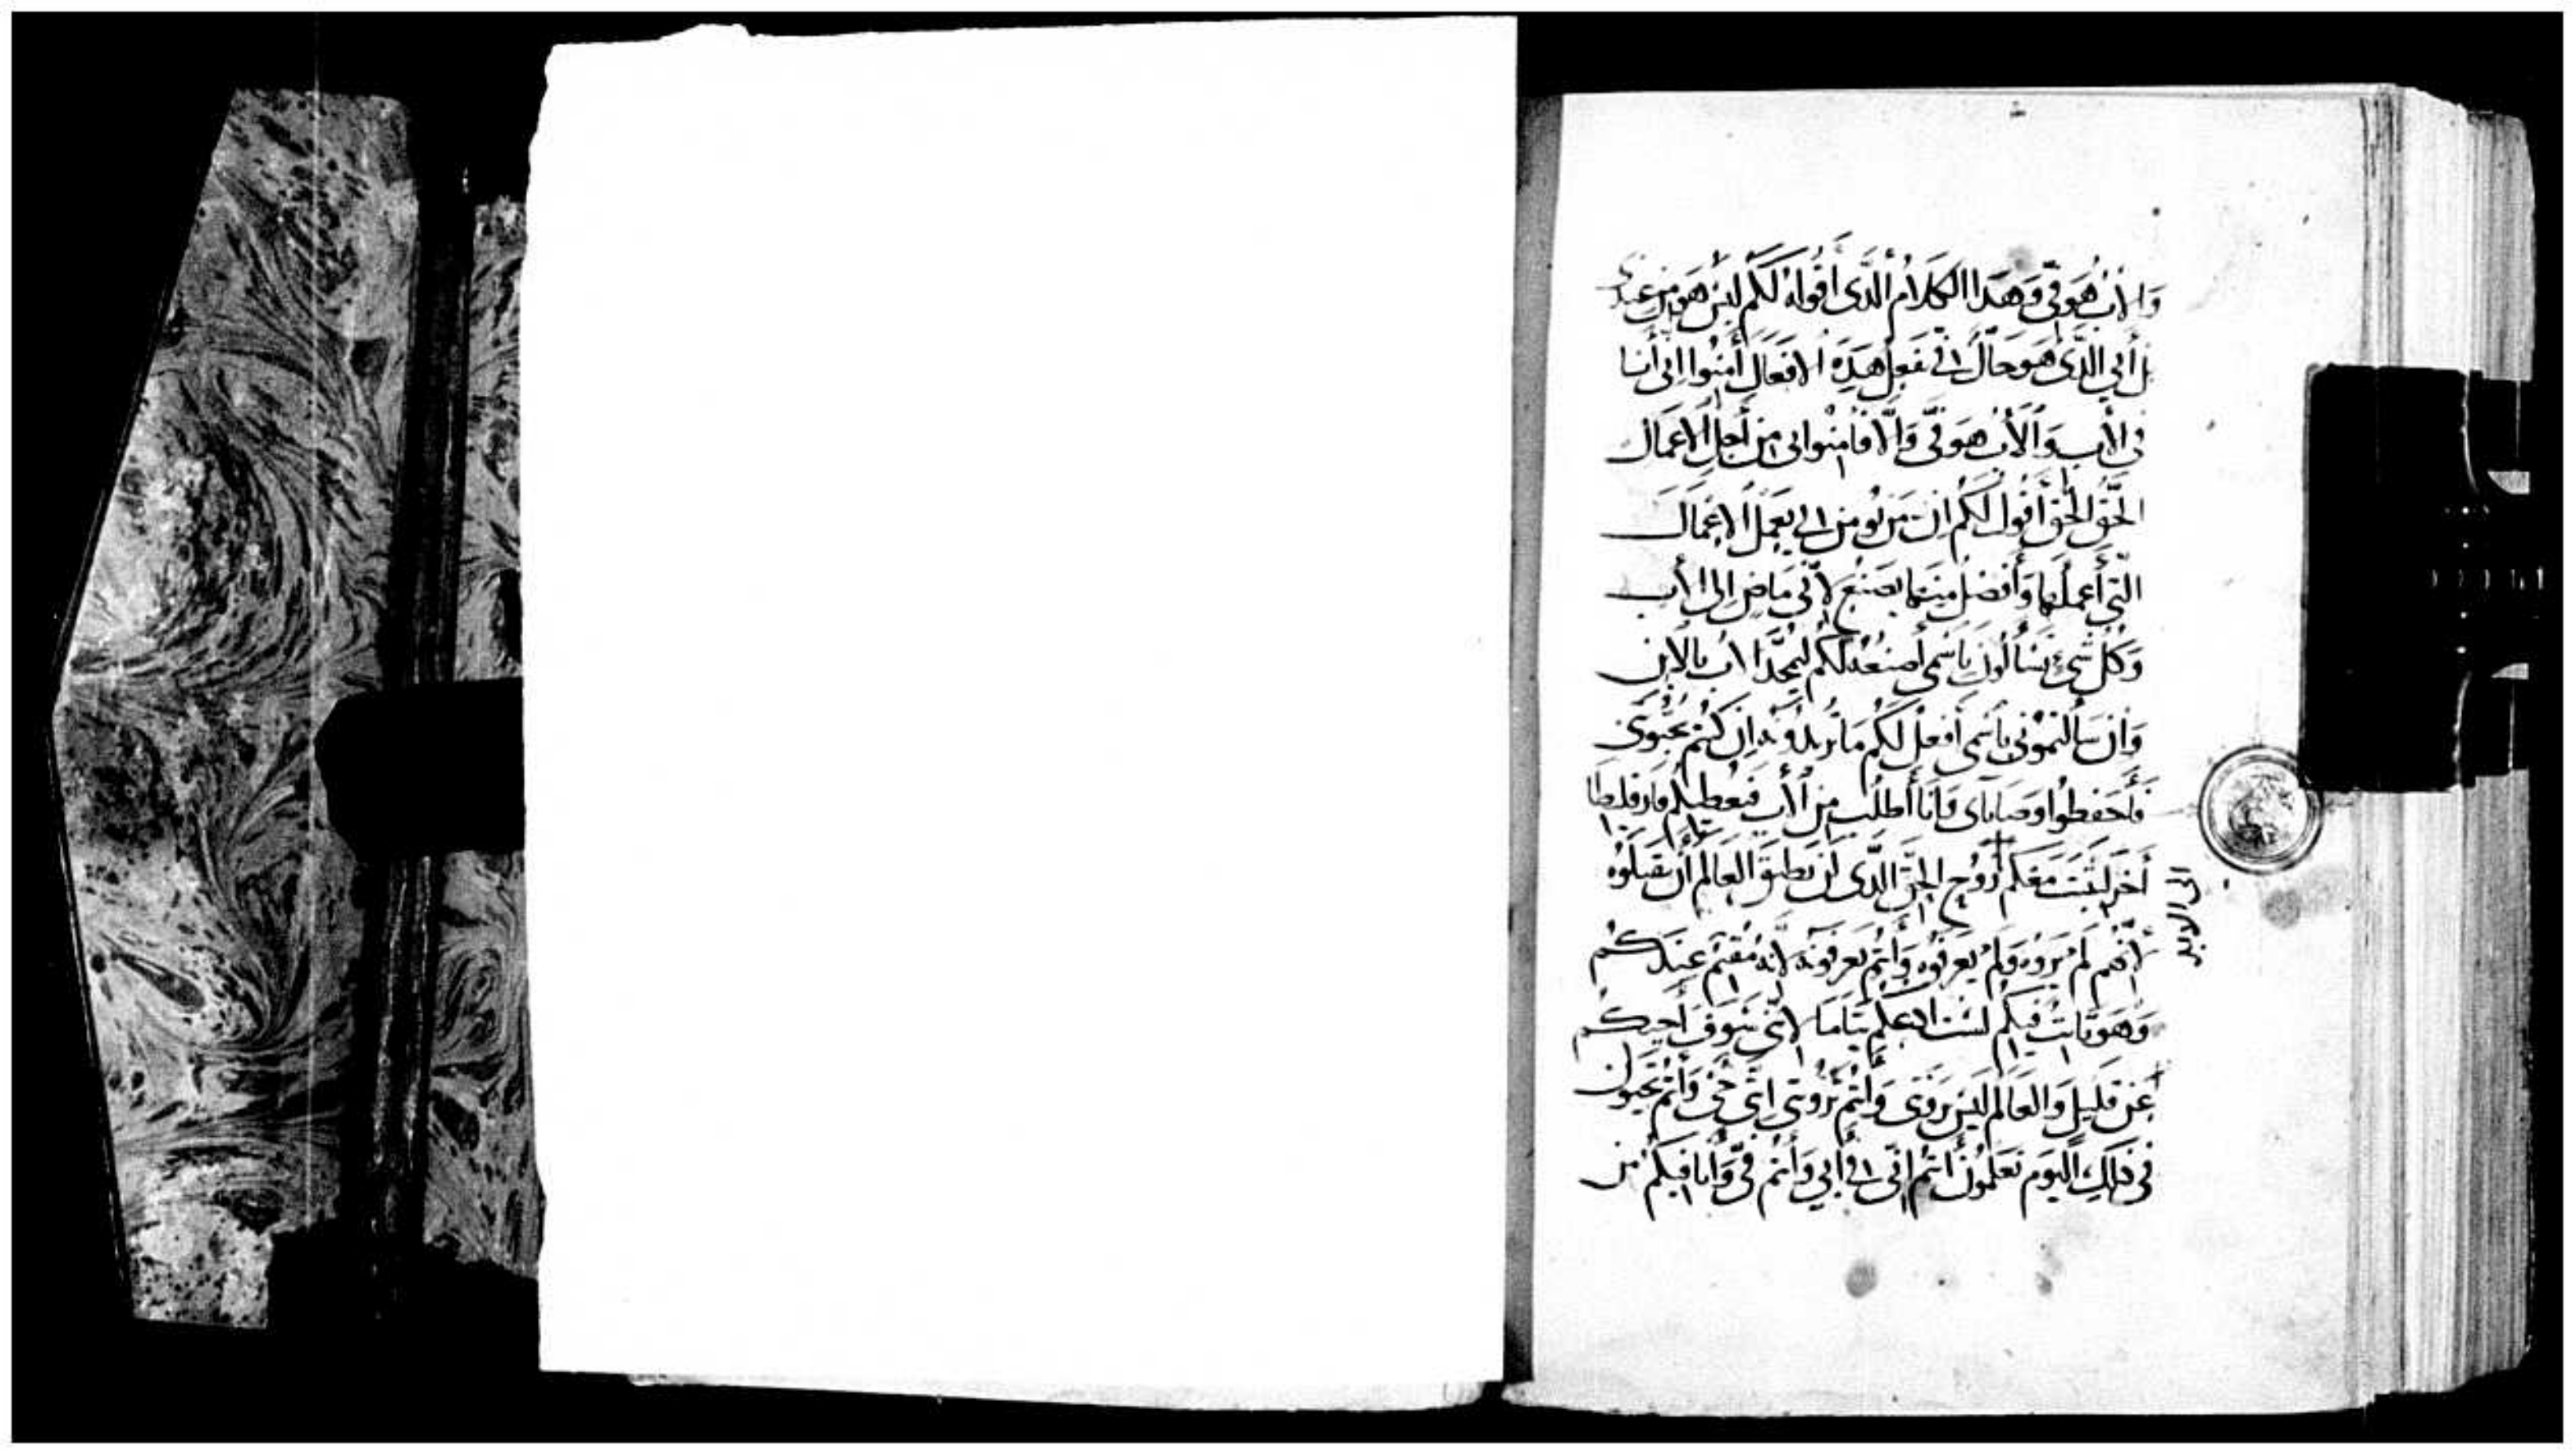 وَالاَبُ هُوَ فِيَّ وَهَدَا الكَلاَمُ الَّدِى أَقُولهُ لَكُم لَيسَ هُوَ مِن عِندِى
بَل أَبِي الَّدِى هُوَ حَالٌ فِيَّ يَفعَل هَدِهِ الافعَالَ أَمِنُوا انِّى أَنَا
فِى الأَبِ وَالأَبُ هُوَ فِىَّ وَالَّا فَامِنُوا بِى مِن أَجلِ الاعمَال
الحَقَّ الحَقَّ أَقُول لَكُم ان مَن يُومِن بِى يَعمَل الاعمَالَ
الَّتِى أَعمَلُهَا وَأَفضَل مِنهَا يَصنَع لانِّى مَاضٍ إِلى الأب
وَكُل شَىءٍ تَسأَلُونَ بِاسمِى أَصنَعُهُ لَكُم لِيُمَجَّدَ الابُ بِالابنِ
وَان سَالتمُونِى بِاسمِى أَفعَل لَكُم مَا تُرِيدُونَه ان كُنتُم تُحِبُّونِى
فَاحفَظُوا وَصَايَاىَ وَأَنَا أَطلُب مِنَ الأَبِ فَيُعطِيكُم فَارَقلِيطَا
أَخَر لِيَثبُتَ مَعَكُم رُوح الحَقِّ الَّدِى لَن يُطِيقَ العَالَم أَن يَقبَلُوه
الى الابد
لانَّهُم لَم يَرَوهُ وَلَم يَعرِفُوه وَأَنتُم تَعرِفُونَه لانَّهُ مُقِيم عِندَكُم
وَهُوَ ثَابِتٌ فِيكُم لَستُ ادعكُم يَتَامَا لانِّى سَوفَ أَجِيكُم
عَن قَلِيل وَالعَالَم لَيسَ يَرَونِى وَأَنتُم تَرَونِى انِّى حَىّ وَأَنتُم تَحيَون
فِى دَلِكَ اليَوم تَعلَمُونَ أَنتُم انِّى فِى أَبِي وَأَنتُم فِىَّ وَأَنَا فِيكُم مَن